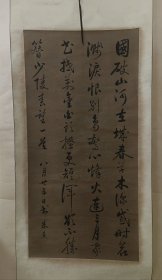 國破山河在城春草木深感時花
濺淚恨別鳥驚心烽火連三月家
書抵萬金白頭搔更短渾欲不勝
簪少陵春望一首 八月